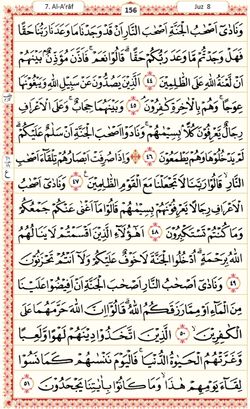 7. Al-A'râf 156 Juz 8
وَنَادٰٓى اَصْحٰبُ الْجَنَّةِ اَصْحٰبَ النَّارِ اَنْ قَدْ وَجَدْنَا مَا وَعَدَنَا رَبُّنَا حَقًّا
فَهَلْ وَجَدْتُّمْ مَّا وَعَدَ رَبُّكُمْ حَقًّا ۗ قَالُوْا نَعَمْ ۚ فَاَذَّنَ مُؤَذِّنٌۢ بَيْنَهُمْ
اَنْ لَّعْنَةُ اللّٰهِ عَلَى الظّٰلِمِيْنَ ۙ ٤٤ الَّذِيْنَ يَصُدُّوْنَ عَنْ سَبِيْلِ اللّٰهِ وَيَبْغُوْنَهَا
عِوَجًا ۚ وَهُمْ بِالْاٰخِرَةِ كٰفِرُوْنَ ۘ ٤٥ وَبَيْنَهُمَا حِجَابٌ ۚ وَعَلَى الْاَعْرَافِ
رِجَالٌ يَّعْرِفُوْنَ كُلًّاۢ بِسِيْمٰىهُمْ ۚ وَنَادَوْا اَصْحٰبَ الْجَنَّةِ اَنْ سَلٰمٌ عَلَيْكُمْ ۗ
لَمْ يَدْخُلُوْهَا وَهُمْ يَطْمَعُوْنَ ٤٦ وَاِذَا صُرِفَتْ اَبْصَارُهُمْ تِلْقَاۤءَ اَصْحٰبِ
النَّارِ ۙ قَالُوْا رَبَّنَا لَا تَجْعَلْنَا مَعَ الْقَوْمِ الظّٰلِمِيْنَ ࣖ ٤٧ وَنَادٰٓى اَصْحٰبُ
الْاَعْرَافِ رِجَالًا يَّعْرِفُوْنَهُمْ بِسِيْمٰىهُمْ قَالُوْا مَآ اَغْنٰى عَنْكُمْ جَمْعُكُمْ
وَمَا كُنْتُمْ تَسْتَكْبِرُوْنَ ٤٨ اَهٰٓؤُلَاۤءِ الَّذِيْنَ اَقْسَمْتُمْ لَا يَنَالُهُمُ
اللّٰهُ بِرَحْمَةٍ ۗ اُدْخُلُوا الْجَنَّةَ لَا خَوْفٌ عَلَيْكُمْ وَلَآ اَنْتُمْ تَحْزَنُوْنَ
٤٩ وَنَادٰٓى اَصْحٰبُ النَّارِ اَصْحٰبَ الْجَنَّةِ اَنْ اَفِيْضُوْا عَلَيْنَا
مِنَ الْمَاۤءِ اَوْ مِمَّا رَزَقَكُمُ اللّٰهُ ۗ قَالُوْٓا اِنَّ اللّٰهَ حَرَّمَهُمَا عَلَى
الْكٰفِرِيْنَ ۙ ٥٠ الَّذِيْنَ اتَّخَذُوْا دِيْنَهُمْ لَهْوًا وَّلَعِبًا
وَّغَرَّتْهُمُ الْحَيٰوةُ الدُّنْيَا ۚ فَالْيَوْمَ نَنْسٰىهُمْ كَمَا نَسُوْا
لِقَاۤءَ يَوْمِهِمْ هٰذَا ۙ وَمَا كَانُوْا بِاٰيٰتِنَا يَجْحَدُوْنَ ٥١